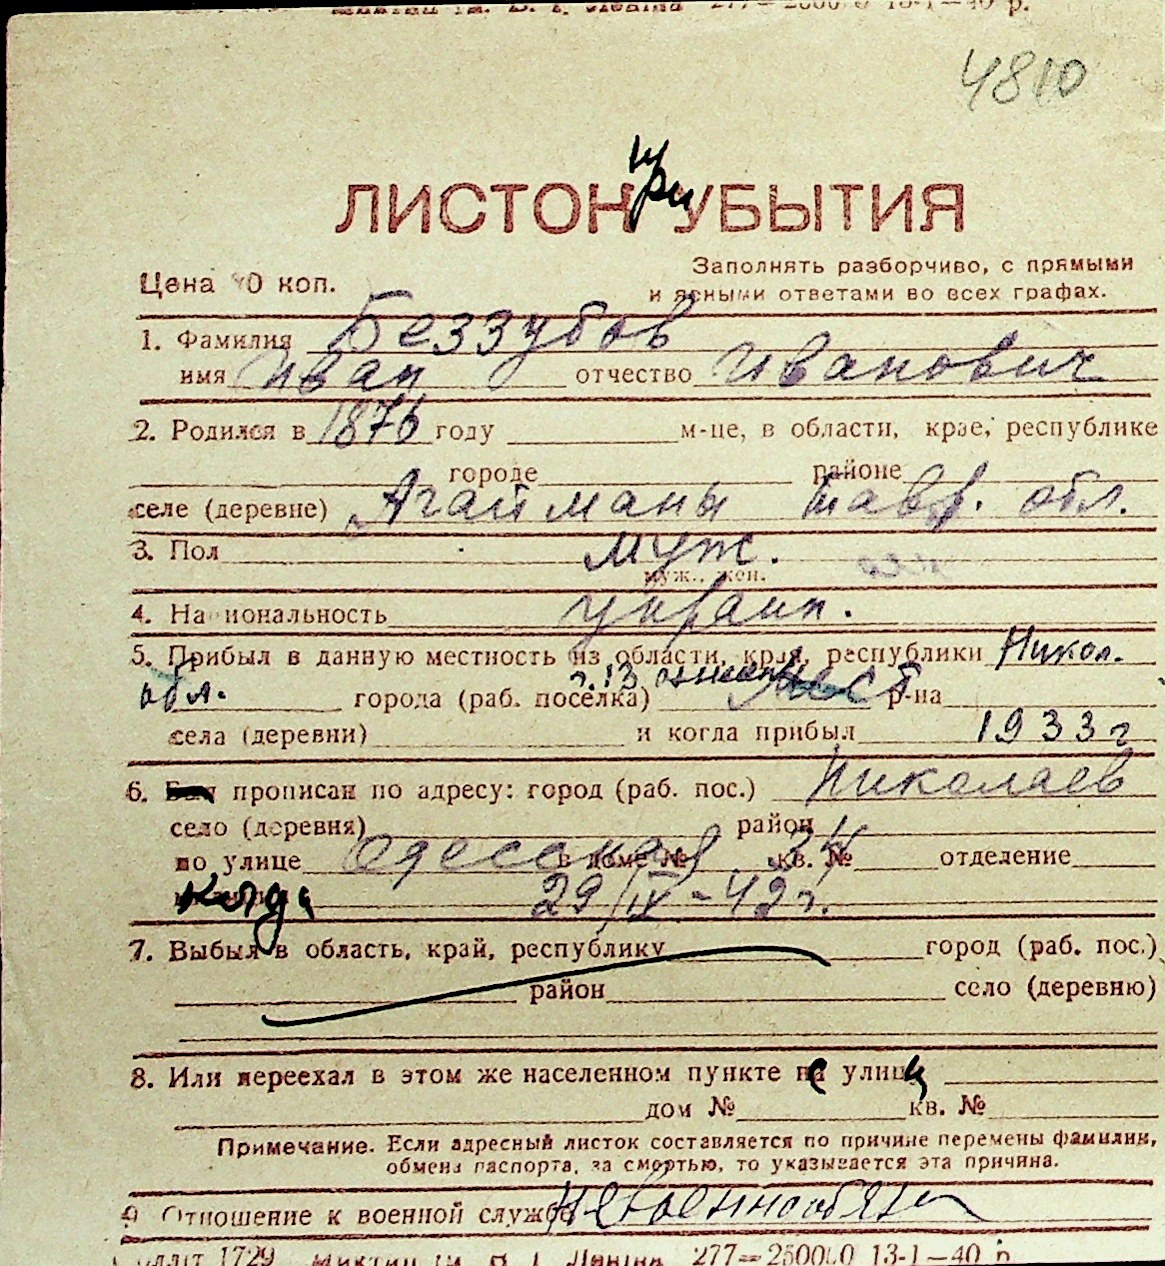 277—2500 0 13-1—40 р.
4810
при
ЛИСТОК УБЫТИЯ
Заполнять разборчиво, с прямыми
Цена 0 коп.
и ясными ответами во всех графах.
1. Фамилия Беззубов
имя Иван отчество Иванович
2. Родился в 1876 году м-це, в области, крае, республике
городе районе
селе (деревне) Агайманы тавр. обл.
3. Пол муж.
муж., жен.
4. Национальность украин.
5. Прибыл в данную местность из области, края, республики Никол.
обл. города (раб. поселка) р-на
села (деревни) и когда прибыл 1933 г
6. Был прописан по адресу: город (раб. пос.) Николаев
село (деревня) район
по улице Одесская в доме № 34 кв. № отделение
когда 29/IX-42 г.
7. Выбыл в область, край, республику город (раб. пос.)
район село (деревню)
8. Или переехал в этом же населенном пункте с улиц
дом № кв. №
Примечание. Если адресный листок составляется по причине перемены фамилии,
обмена паспорта, за смертью, то указывается эта причина.
9 Отношение к военной службе Невоеннообязан
1729 277—250000 13-1—40 р.